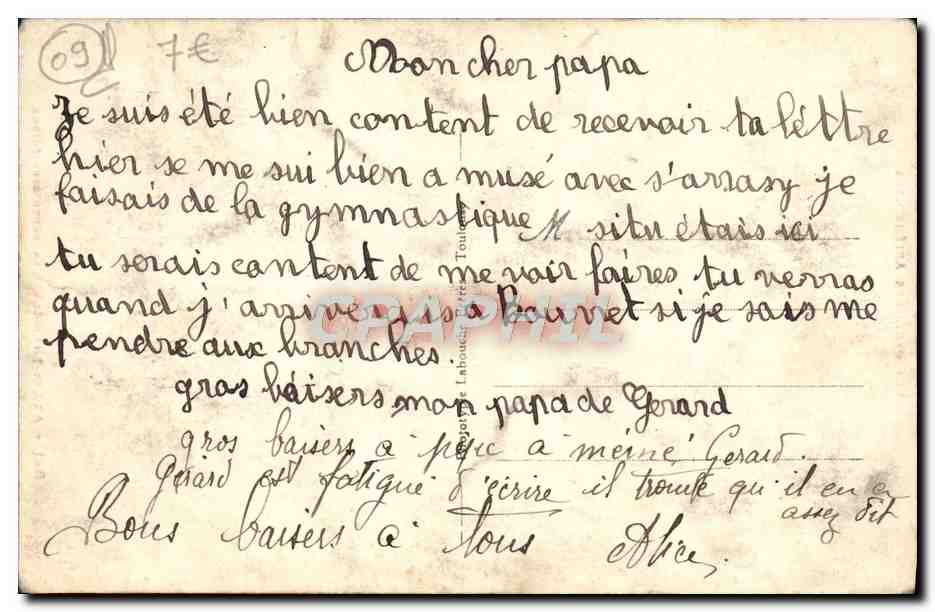 09
7€
Mon cher papa
Je suis été bien content de recevoir ta léttre
hier se me sui bien a musé avec s'arrasy je
faisais de la gymnastique M si tu étais ici
tu serais content de me voir faires tu verras
quand j'arriverais a Bourret si je sais me
pendre aux branches.
gros baisers mon papa de Gerard
gros baisers a pepe a mémé Gerard.
Gérard est fatigué d'écrire il trouve qu'il en a
assez dit
Bons baisers à tous Alice
CPAPHIL
Labouche Frères Toulouse